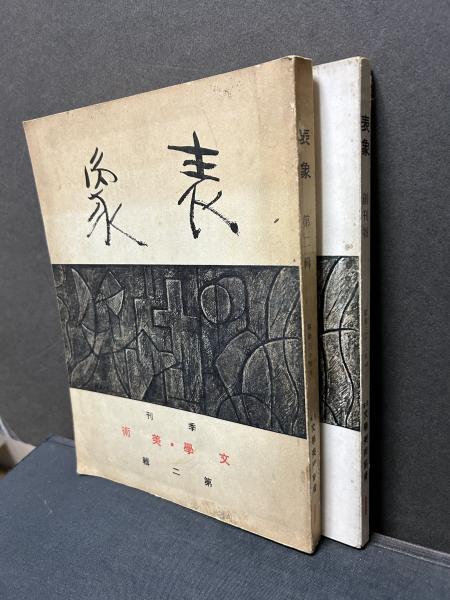 表象
季刊
文學・美術
第二輯
表象 第二輯
表象 創刊號